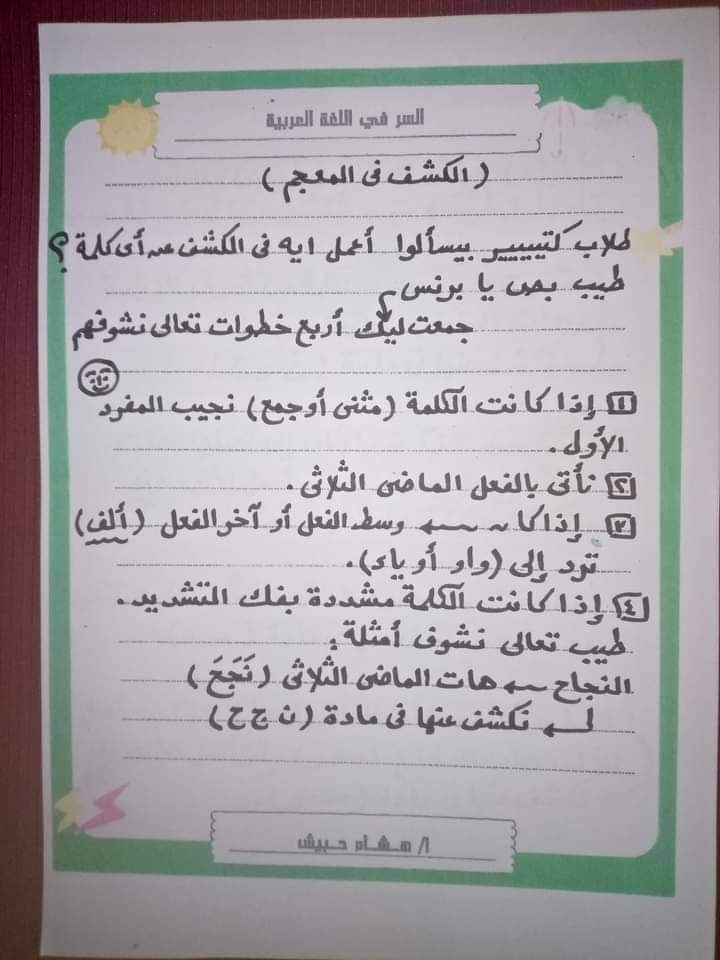 السر في اللغة العربية
( الكشف فى المعجم )
طلاب كتيييير بيسألوا أعمل ايه فى الكشف عن أى كلمة ؟
طيب بص يا برنس
جمعت ليك أربع خطوات تعالى نشوفهم
١ إذا كانت الكلمة (مثنى أو جمع) نجيب المفرد
الأول .
٢ نأتى بالفعل الماضى الثلاثى .
٣ إذا كان ← وسط الفعل أو آخر الفعل (ألف)
ترد إلى (واو أو ياء).
٤ إذا كانت الكلمة مشددة بفك التشديد .
طيب تعالى نشوف أمثلة :
النجاح ← هات الماضى الثلاثى (نَجَحَ)
نكشف عنها فى مادة (ن ج ح)
أ/ هشام حبيش